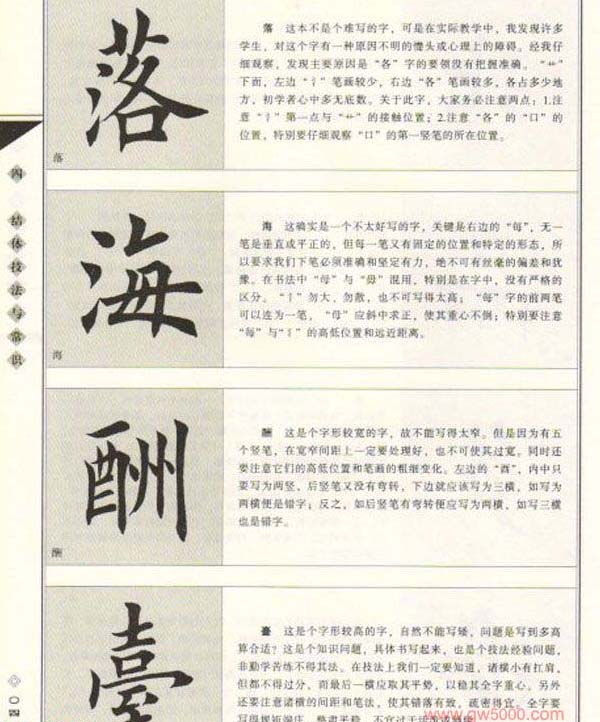 落
落
落 这本不是个难写的字，可是在实际教学中，我发现许多
学生，对这个字有一种原因不明的憷头或心理上的障碍。经我仔
细观察，发现主要原因是“各”字的要领没有把握准确。“艹”
下面，左边“氵”笔画较少，右边“各”笔画较多，各占多少地
方，初学者心中多无底数。关于此字，大家务必注意两点：1.注
意“氵”第一点与“艹”的接触位置；2.注意“各”的“口”的
位置，特别要仔细观察“口”的第一竖笔的所在位置。
四 结体技法与常识
海
海
海 这确实是一个不太好写的字，关键是右边的“每”，无一
笔是垂直或平正的，但每一笔又有固定的位置和特定的形态，所
以要求我们下笔必须准确和坚定有力，绝不可有丝毫的偏差和犹
豫。在书法中“母”与“毋”混用，特别是在字中，没有严格的
区分。“氵”勿大，勿散，也不可写得太高；“每”字的前两笔
可以连为一笔，“母”应斜中求正，使其重心不倒；特别要注意
“每”与“氵”的高低位置和远近距离。
酬
酬
酬 这是个字形较宽的字，故不能写得太窄。但是因为有五
个竖笔，在宽窄间距上一定要处理好，也不可使其过宽，同时还
要注意它们的高低位置和笔画的粗细变化。左边的“酉”，内中只
要写为两竖，后竖笔又没有弯转，下边就应该写为三横，如写为
两横便是错字；反之，如后竖笔有弯转便应写为两横，如写三横
也是错字。
臺
臺 这是个字形较高的字，自然不能写矮，问题是写到多高
算合适？这是个知识问题，具体书写起来，也是个技法经验问题，
非勤学苦练不得其法。在技法上我们一定要知道，诸横小有扛肩，
但都不得过分，而最后一横应取其平势，以稳其全字重心。另外
还要注意诸横的间距和笔法，使其错落有致，疏密得宜。全字要
写得挺拔端庄，整肃平稳，不宜过于
www.gw5000.com